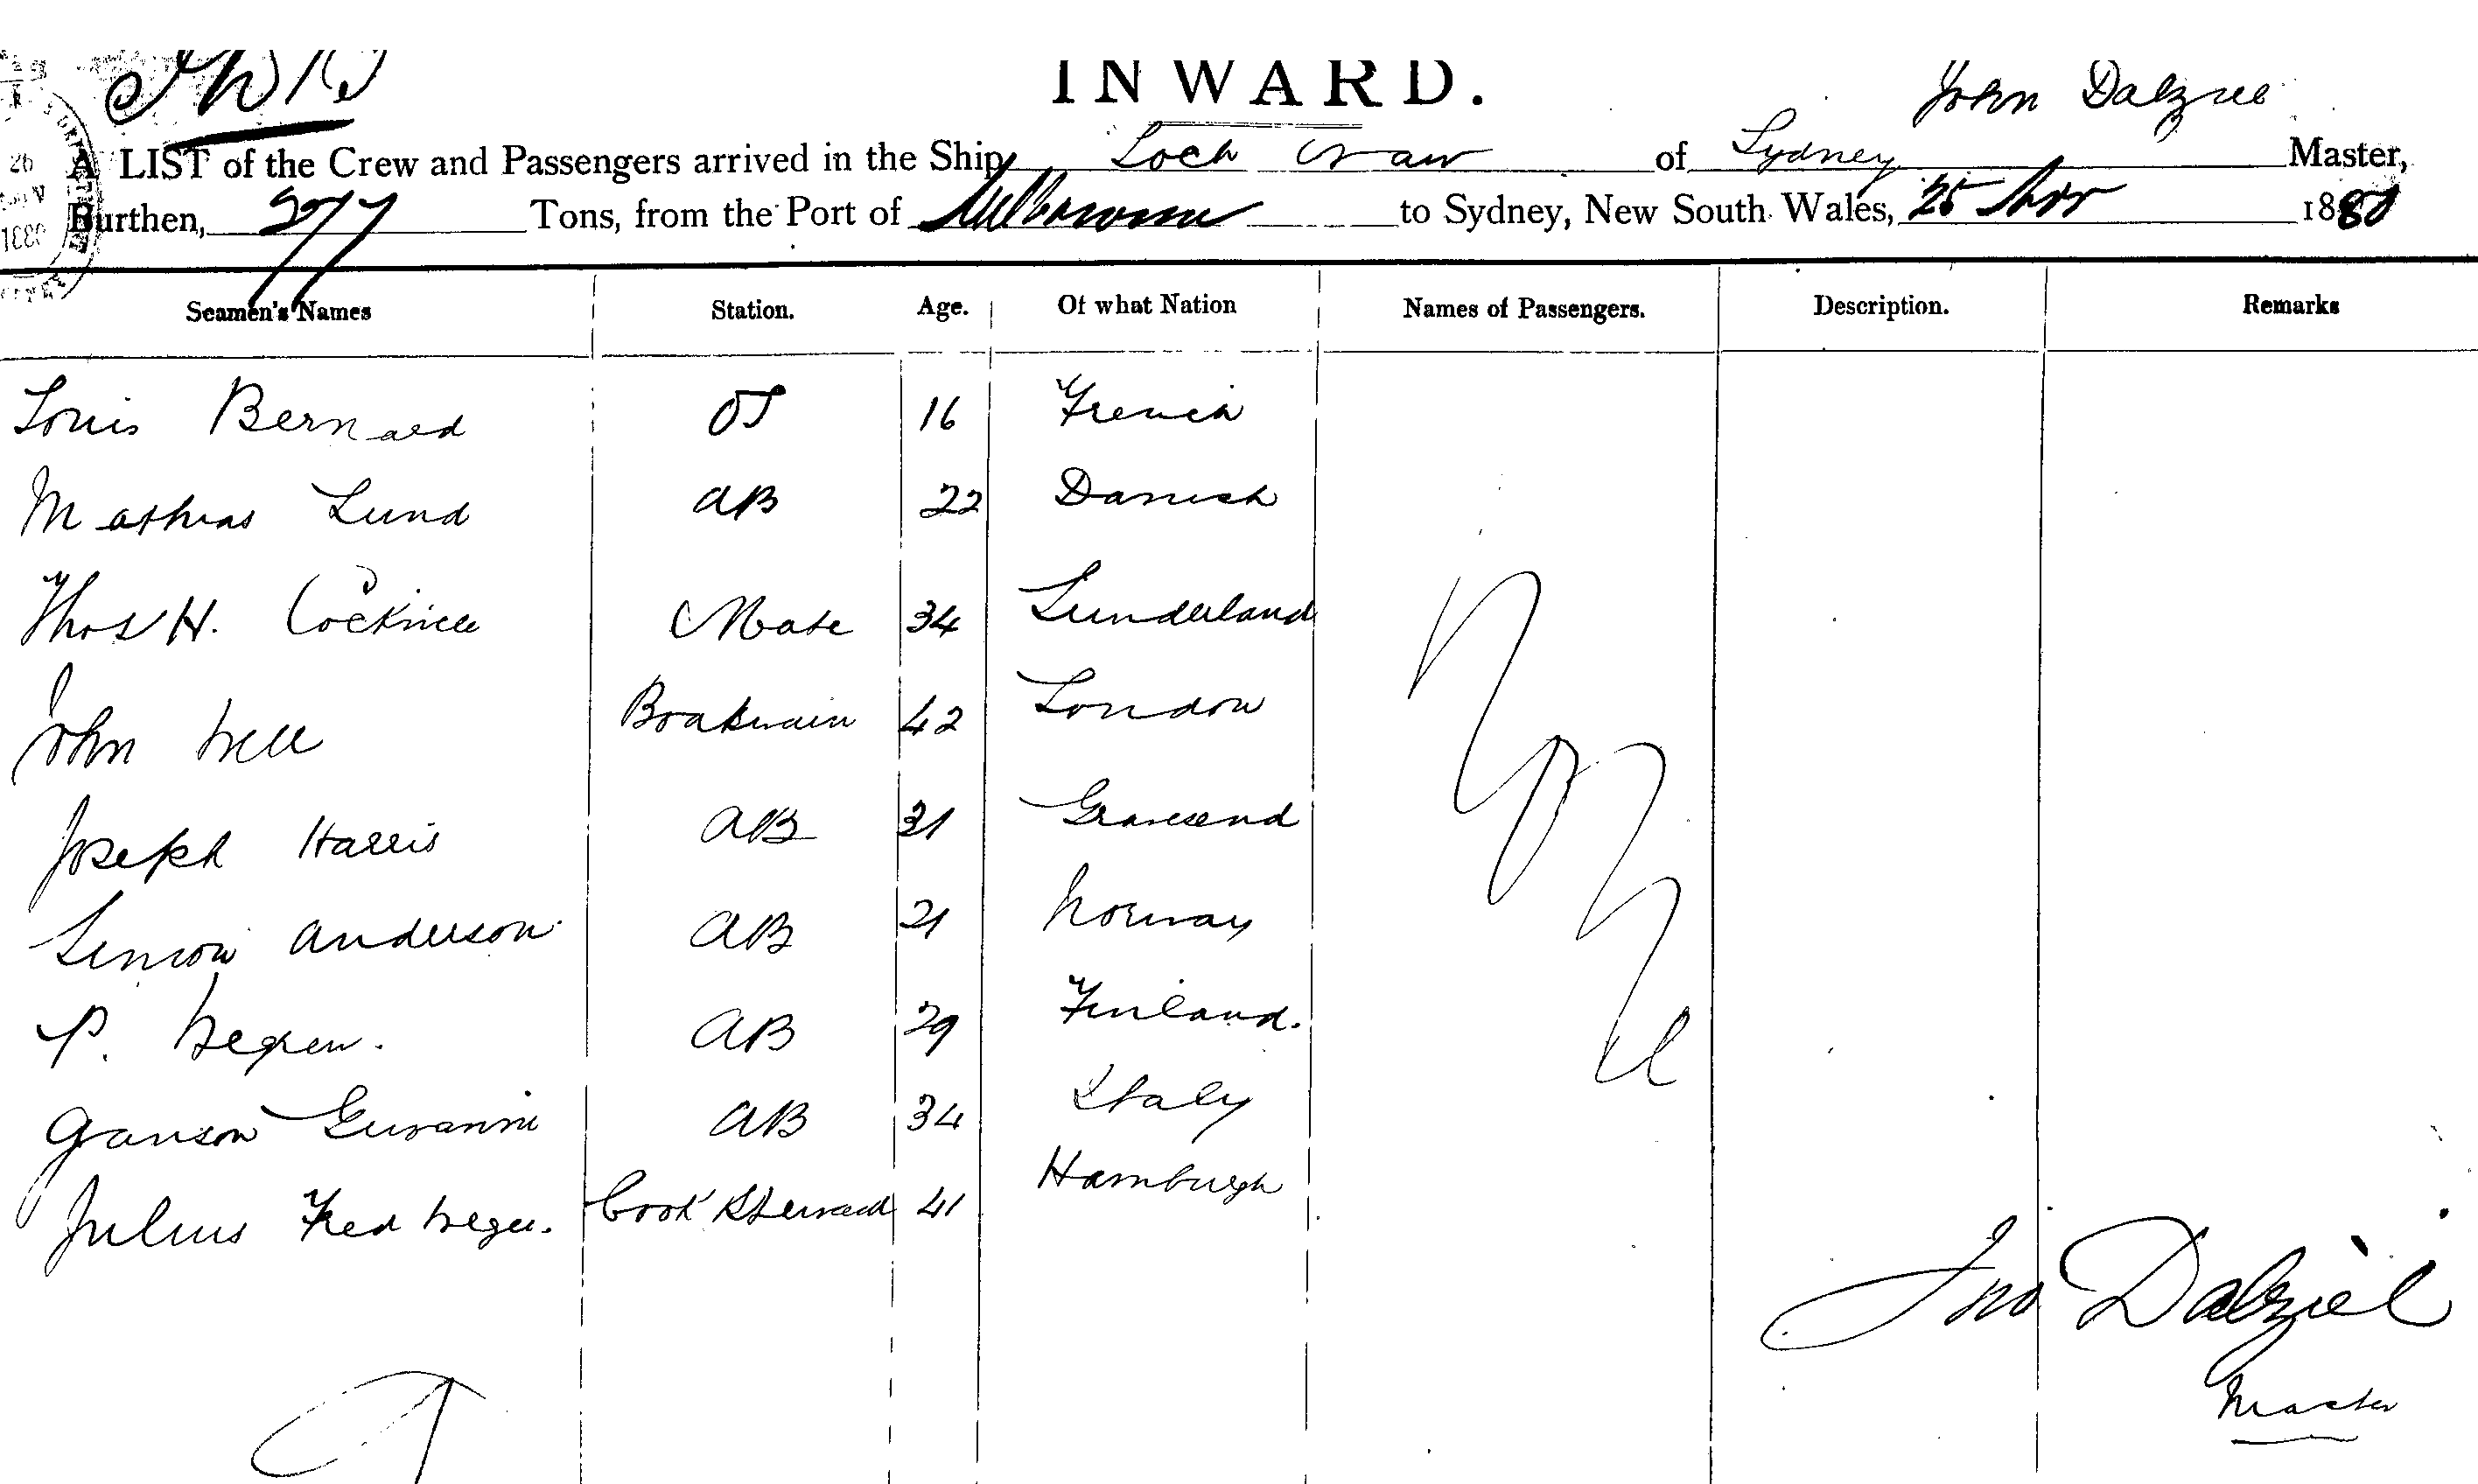 INWARD.
John Dalziel
A LIST of the Crew and Passengers arrived in the Ship Loch of Sydney Master,
Burthen, 277 Tons, from the Port of Melbourne to Sydney, New South Wales, 25 Nov 1880
Seamen's Names Station. Age. Of what Nation Names of Passengers. Description. Remarks
Louis Bernard OS 16 French
Mathias Lund AB 22 Danish
Thos H. Mate 34 Sunderland
John Boatswain 42 London
Joseph Harris AB 31 Gravesend
Simon Anderson AB 21 Norway
P. AB 29 Finland.
AB 34 Italy
Julius Fred Cook & Steward 41 Hamburgh
None
Jno Dalziel
Master